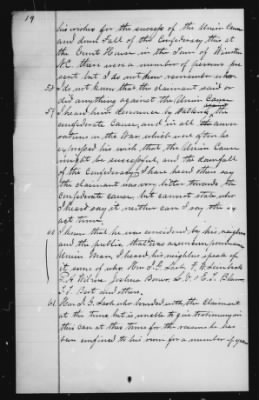 19
his wishes for the success of the Union Cause
and down Fall of the Confederacy, this at
the Court House in the Town of Winston
N.C. there were a number of persons pre
sent but I do not now remember who
58 I do not know that the claimant said or
did anything against the Union Cause
59 I heard him denounce the
Confederate Cause, and in all the
in the War which were often he
expressed his wish that the Union Cause
might be successful, and the downfall
of the Confederacy, I have heard others say
the claimant was very bitter towards the
Confederate cause, but cannot state who
I heard say it neither can I say the ex
act time.
60 I know that he was considered by his neighbors
and the public, that was a
Union Man, I heard his neighbors speak of
it some of who Hon J.G. Lash,
Joshua Boner,
and others.
61 Hon J.G. Lash who boarded with the Claimant
at the time but is unable to give testimony in
this case at this time for the reason he has
been confined to his room for a number of years